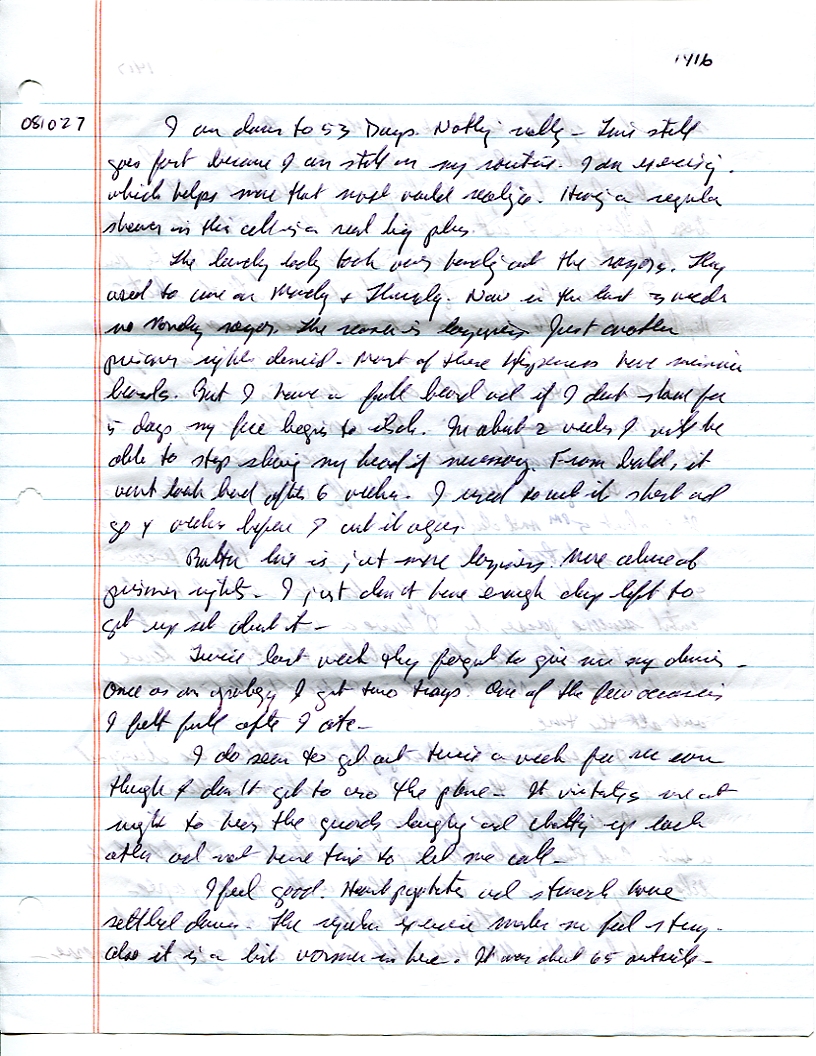 1416
081027
I am down to 53 Days. Nothing really - Time still
goes fast because I am still on my routine. I am exercising.
which helps more that most would realize. Having a regular
shower in this cell is a real big plus.
The lovely lady took over handing out the razors. They
used to come on Monday & Thursday. Now in the last 3 weeks
no Monday razors. The reason is laziness. Just another
prisoner rights denied. Most of these have minimum
beards. But I have a full beard and if I don't shave for
5 days my face begins to itch. In about 2 weeks I will be
able to stop shaving my head if necessary. From bald, it
wont look bad after 6 weeks. I used to cut it short and
go 4 weeks before I cut it again.
line is just more laziness. More abuse of
prisoner rights. I just don't have enough days left to
get up set about it -
Twice last week they forgot to give me my dinner -
Once as an apology I got two trays. One of the few occasions
I felt full after I ate -
I do seem to get out twice a week for rec even
though I don't get to use the phone - It irritates me at
night to hear the guards laughing and chatting up each
other and not have time to let me call -
I feel good. Heart and stomach have
settled down. The regular exercise makes me feel strong.
also it is a bit warmer in here. It was about 65 outside -